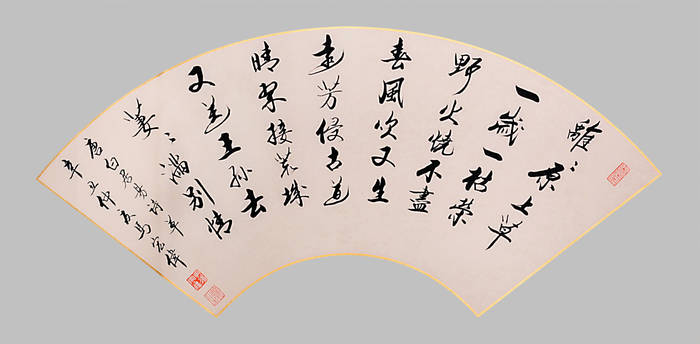 離々原上草
一歲一枯榮
野火燒不盡
春風吹又生
遠芳侵古道
晴翠接荒城
又送王孫去
萋々滿別情
唐白居易詩草
辛丑仲夏馬宏偉